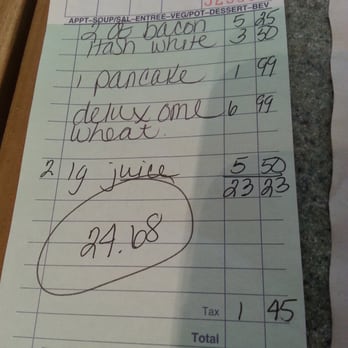 APPT-SOUP/SAL-ENTREE-VEG/POT-DESSERT-BEV
2 bacon 5 25
Hash white 3 50
1 pancake 1 99
delux ome 6 99
wheat.
2 lg juice 5 50
23 23
24.68
Tax 1 45
Total